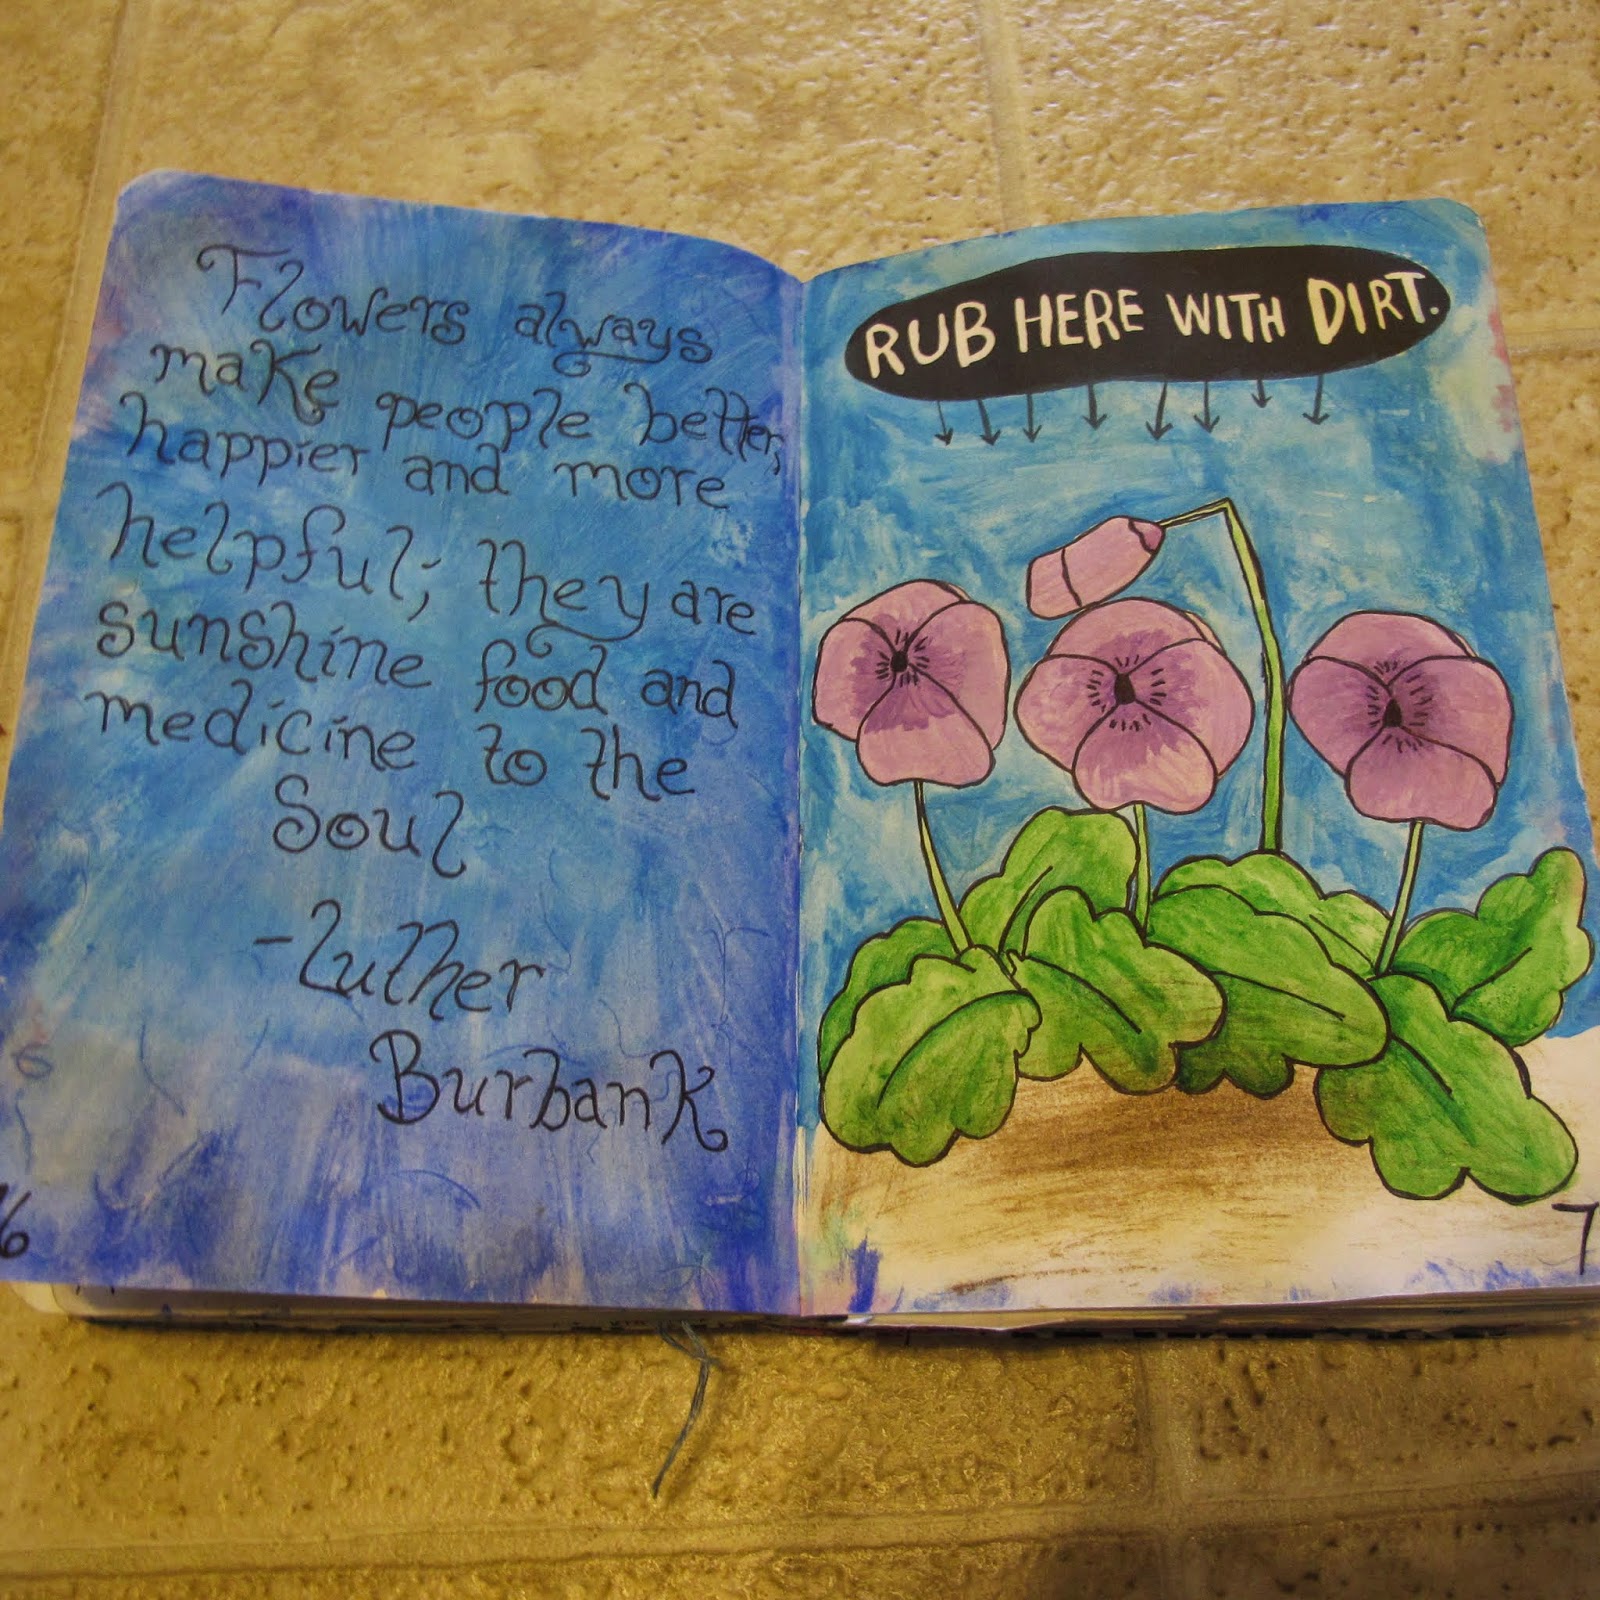 Flowers always
make people better,
happier and more
helpful; they are
sunshine food and
medicine to the
Soul
-Luther
Burbank
RUB HERE WITH DIRT.
7